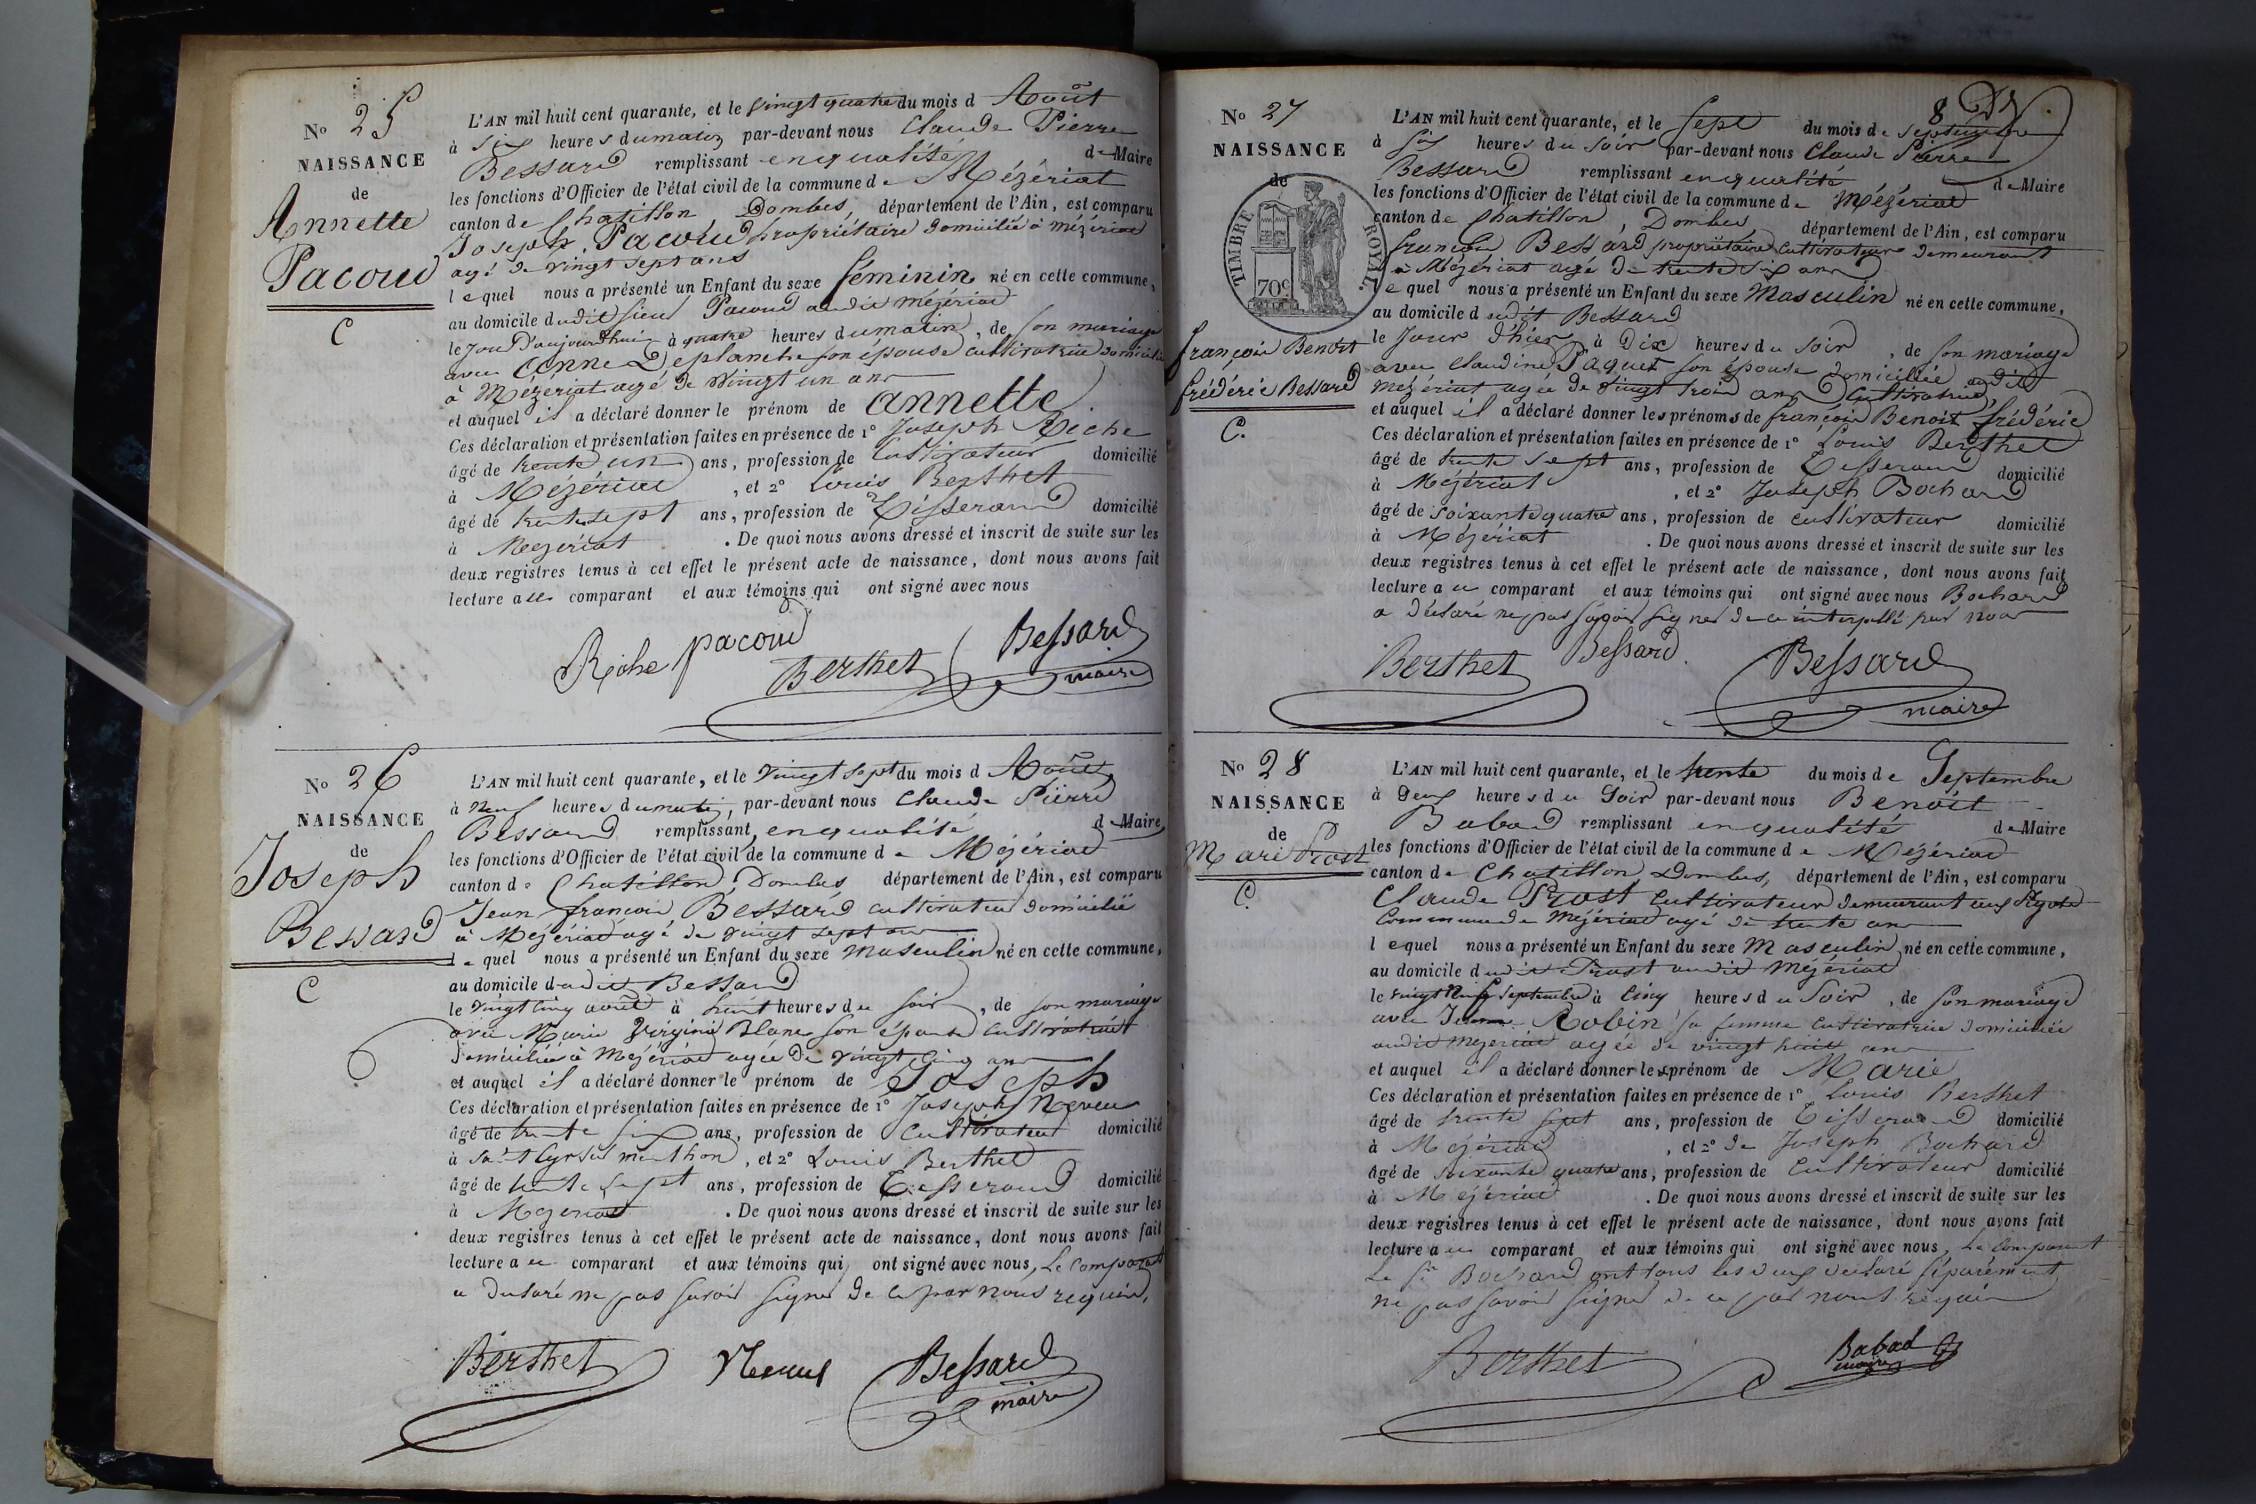 N° 25
NAISSANCE
de
Annette
Pacoud
C
L'AN mil huit cent quarante, et le vingt quatre du mois d Août
à six heures du matin par-devant nous Claude Pierre
Bessard remplissant en qualité de Maire
les fonctions d'Officier de l'état civil de la commune de Mézériat
canton de Chatillon Dombes, département de l'Ain, est comparu
Joseph Pacoud propriétaire domicilié à mézériat
agé de vingt sept ans
lequel nous a présenté un Enfant du sexe féminin né en cette commune,
au domicile dudit sieur Pacoud audit mézériat
le jour d'aujourd'hui à quatre heures du matin, de son mariage
avec Anne Deplanche son épouse cultivatrice
à Mézériat agé de vingt un ans
et auquel il a déclaré donner le prénom de annette
Ces déclaration et présentation faites en présence de 1° Joseph Riche
âgé de trente un ans, profession de Cultivateur domicilié
à Mézériat, et 2° Louis Berthet
âgé de trente sept ans, profession de Tisserand domicilié
à Mézériat. De quoi nous avons dressé et inscrit de suite sur les
deux registres tenus à cet effet le présent acte de naissance, dont nous avons fait
lecture au comparant et aux témoins qui ont signé avec nous
Riche pacoud Berthet Bessard
maire
N° 26
NAISSANCE
de
Joseph
Bessard
C
L'AN mil huit cent quarante, et le vingt sept du mois d Août
à neuf heures du matin, par-devant nous Claude Pierre
Bessard remplissant en qualité de Maire
les fonctions d'Officier de l'état civil de la commune de Mézériat
canton de Chatillon Dombes département de l'Ain, est comparu
Jean françois Bessard cultivateur domicilié
à Mézériat agé de vingt sept ans
lequel nous a présenté un Enfant du sexe masculin né en cette commune,
au domicile dudit Bessard
le vingt cinq août à huit heures du soir, de son mariage
avec Marie Virginie Blanc son épouse cultivatrice
domiciliée à Mézériat agée de vingt cinq ans
et auquel il a déclaré donner le prénom de Joseph
Ces déclaration et présentation faites en présence de 1° Joseph Neveu
âgé de trente six ans, profession de Cultivateur domicilié
à St Cyr sur menthon, et 2° Louis Berthet
âgé de trente sept ans, profession de Tisserand domicilié
à Mézériat. De quoi nous avons dressé et inscrit de suite sur les
deux registres tenus à cet effet le présent acte de naissance, dont nous avons fait
lecture au comparant et aux témoins qui ont signé avec nous, Le comparant
a déclaré ne pas savoir signer de ce par nous requis,
Berthet Neveu Bessard
maire
8
N° 27
NAISSANCE
de
TIMBRE ROYAL.
70c
françois Benoit
frédéric Bessard
C.
L'AN mil huit cent quarante, et le sept du mois de septembre
à six heures du soir par-devant nous Claude Pierre
Bessard remplissant en qualité de Maire
les fonctions d'Officier de l'état civil de la commune de Mézériat
canton de Chatillon, Dombes département de l'Ain, est comparu
françois Bessard propriétaire cultivateur demeurant
à Mézériat agé de trente six ans
lequel nous a présenté un Enfant du sexe Masculin né en cette commune,
au domicile dudit Bessard
le jour d'hier à Dix heures du soir, de son mariage
avec claudine Paquet son épouse domiciliée audit
Mézériat agée de vingt trois ans cultivatrice,
et auquel il a déclaré donner les prénoms de françois Benoit frédéric
Ces déclaration et présentation faites en présence de 1° Louis Berthet
âgé de trente sept ans, profession de Tisserand domicilié
à Mézériat, et 2° Joseph Bochard
âgé de soixante quatre ans, profession de cultivateur domicilié
à Mézériat. De quoi nous avons dressé et inscrit de suite sur les
deux registres tenus à cet effet le présent acte de naissance, dont nous avons fait
lecture au comparant et aux témoins qui ont signé avec nous Bochard
a déclaré ne pas savoir signer de ce interpellé par nous
Berthet Bessard Bessard
maire
N° 28
NAISSANCE
de
Marie Prost
C.
L'AN mil huit cent quarante, et le trente du mois de Septembre
à deux heures du Soir par-devant nous Benoit
Babad remplissant en qualité de Maire
les fonctions d'Officier de l'état civil de la commune de Mézériat
canton de Chatillon Dombes, département de l'Ain, est comparu
Claude Prost Cultivateur demeurant aux
Commune de Mézériat agé de trente ans
lequel nous a présenté un Enfant du sexe Masculin né en cette commune,
au domicile dudit Prost audit Mézériat
le vingt neuf septembre à cinq heures du Soir, de son mariage
avec Robin sa femme cultivatrice domiciliée
audit Mézériat agée de vingt huit ans
et auquel il a déclaré donner le prénom de Marie
Ces déclaration et présentation faites en présence de 1° Louis Berthet
âgé de trente sept ans, profession de Tisserand domicilié
à Mézériat, et 2° de Joseph Bochard
âgé de soixante quatre ans, profession de Cultivateur domicilié
à Mézériat. De quoi nous avons dressé et inscrit de suite sur les
deux registres tenus à cet effet le présent acte de naissance, dont nous avons fait
lecture au comparant et aux témoins qui ont signé avec nous, Le Comparant
Le Sr Bochard ont tous les deux déclaré séparément
ne pas savoir signer de ce par nous requis
Berthet Babad
maire